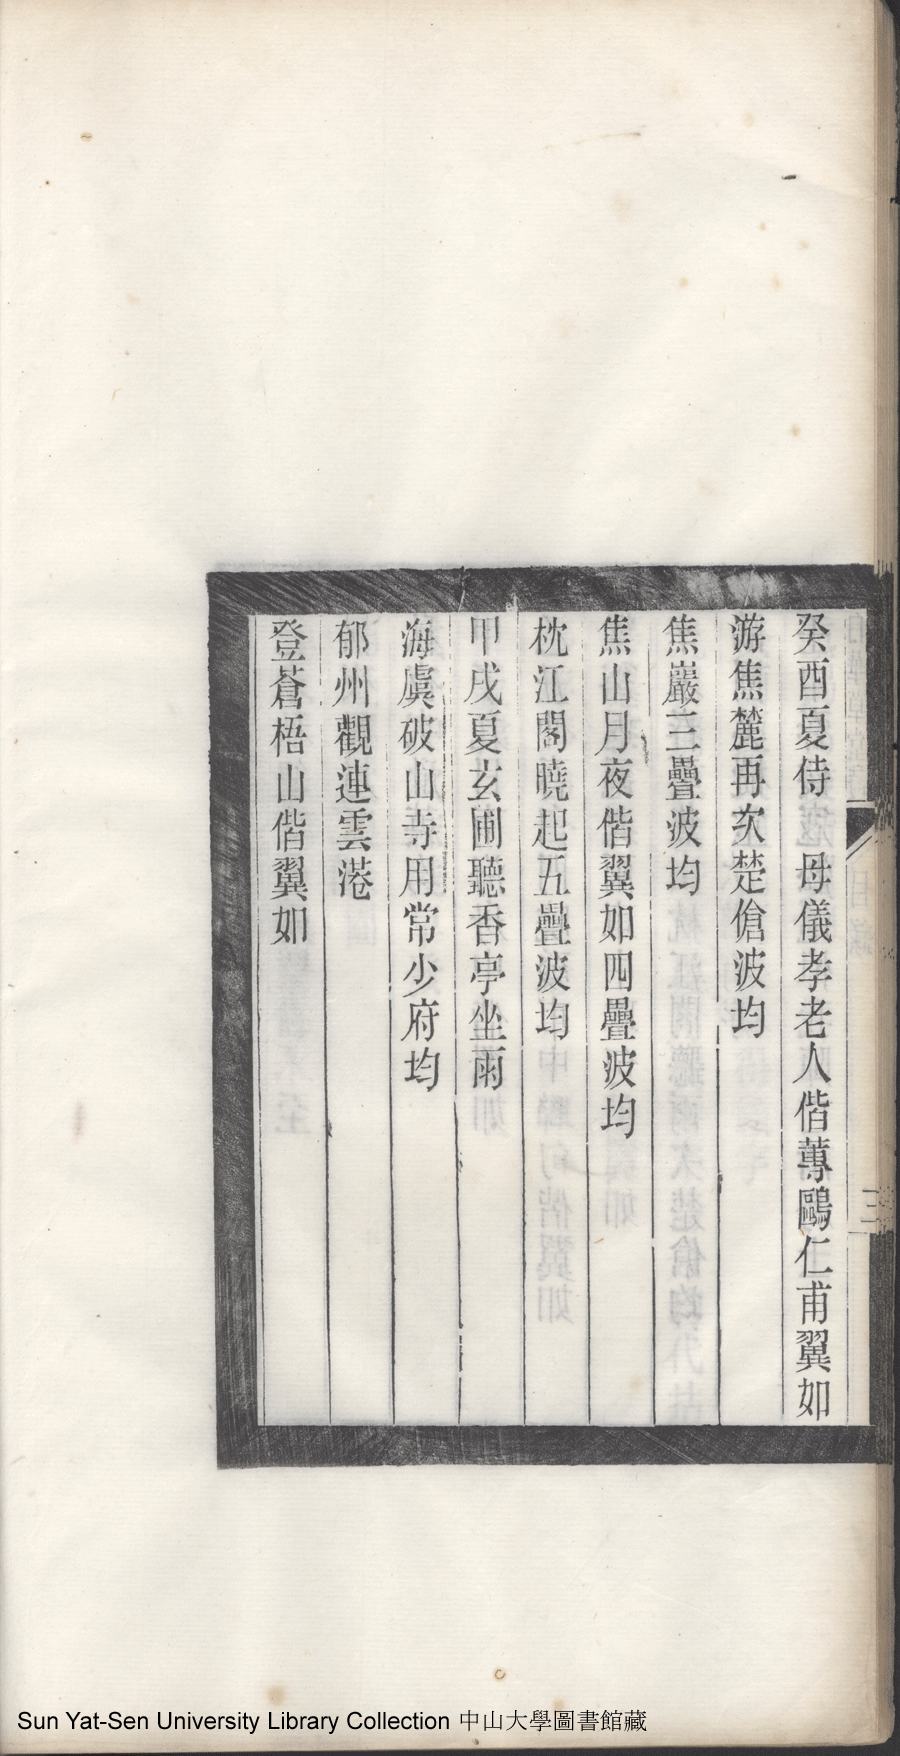 癸酉夏侍　母儀孝老人偕蓴鷗仁甫翼如
游焦麓再次楚傖波均
焦巖三疊波均
焦山月夜偕翼如四疊波均
枕江閣曉起五疊波均
甲戌夏玄圃聽香亭坐雨
海虞破山寺用常少府均
郁州觀連雲港
登蒼梧山偕翼如
Sun Yat-Sen University Library Collection 中山大學圖書館藏